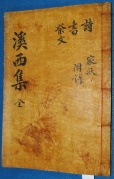 詩
書
祭文
家狀
附錄
溪西集 全